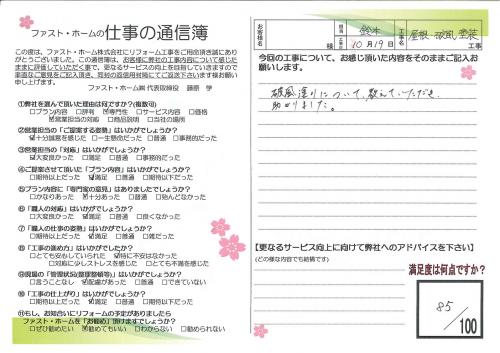 ファスト・ホームの仕事の通信簿
この度は、ファスト・ホーム株式会社にリフォーム工事をご用命頂き誠にあり
がとうございました。この通信簿は、お客様に弊社の工事内容について感じた
ままに評価していただく事で、更なるサービスの向上を目指していきますので
率直なご意見をご記入頂き、同封の返信用封筒にてご返送下さいます様お願い
申し上げます。
ファスト・ホーム㈱ 代表取締役 藤原 学
①弊社を選んで頂いた理由は何ですか？(複数可)
□プラン内容 □評判 ☑専門性 □サービス内容 □価格
☑営業担当の対応 □商品説明 □当社の場所
②営業担当の「ご提案する姿勢」はいかがでしょうか？
☑十分誠意を感じた □一生懸命だった □普通 □事務的だった
③営業担当の「対応」はいかがでしょうか？
☑大変良かった □満足 □普通 □事務的だった
④ご提案させて頂いた「プラン内容」はいかがでしょうか？
□期待以上だった ☑満足 □普通 □期待以下だった
⑤プラン内容に「専門家の意見」はありましたでしょうか？
□かなりあった ☑あった □普通 □殆んどなかった
⑥「職人の対応」はいかがでしょうか？
□大変良かった ☑満足 □普通 □良くなかった
⑦「職人の仕事の姿勢」はいかがでしょうか？
□期待以上だった ☑満足 □普通 □雑だった
⑧「工事の進め方」はいかがでしたか？
□とても安心していられた ☑特に不安はなかった
□対応に少しストレスを感じた □とても不満を感じた
⑨現場の「管理状況(整理整頓等)」はいかがでしょうか？
□言うことなし ☑配慮があった □普通 □できていない
⑩「工事の仕上がり」はいかがでしょうか？
□期待以上だった ☑満足 □普通 □期待以下だった
⑪もし、お知合いにリフォームの予定がありましたら
ファスト・ホームを「お勧め」頂けますでしょうか？
□ぜひ勧めたい ☑勧めてもいい □わからない □勧められない
お客様名
様
担当 鈴木
工事日 10月19日
工事名 屋根 破風 塗装
工事
今回の工事について、お感じ頂いた内容をそのままご記入お
願いします。
破風塗りについて、教えていただき、
助かりました。
【更なるサービス向上に向けて弊社へのアドバイスを下さい】
(どの様な内容でも結構です)
満足度は何点ですか?
85
/100